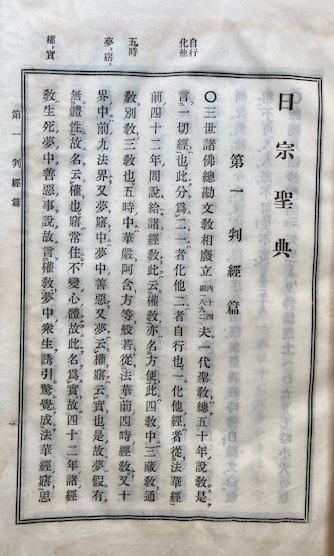 自行
化他
五時
夢、寤、
權、實
日宗聖典
第一判經篇
〇三世諸佛總勘文教相廢立内十四縮一八九二夫一代聖教總五十年說教是
言一切經也此分爲二一者化他二者自行也一化他經者從法華經
前四十二年間說給諸經教此云權教亦名方便此四教中三藏教通
教別教三教也五時中華嚴阿含方等般若從法華前四時經教又十
界中前九法界又夢寤中夢中善惡又夢云權寤云實也是故夢假有
無體性故名云權也寤常住不變心體故此名爲實故四十二年諸經
教生死夢中善惡事說故言權教夢中衆生誘引驚覺成法華經寤思
第一判經篇